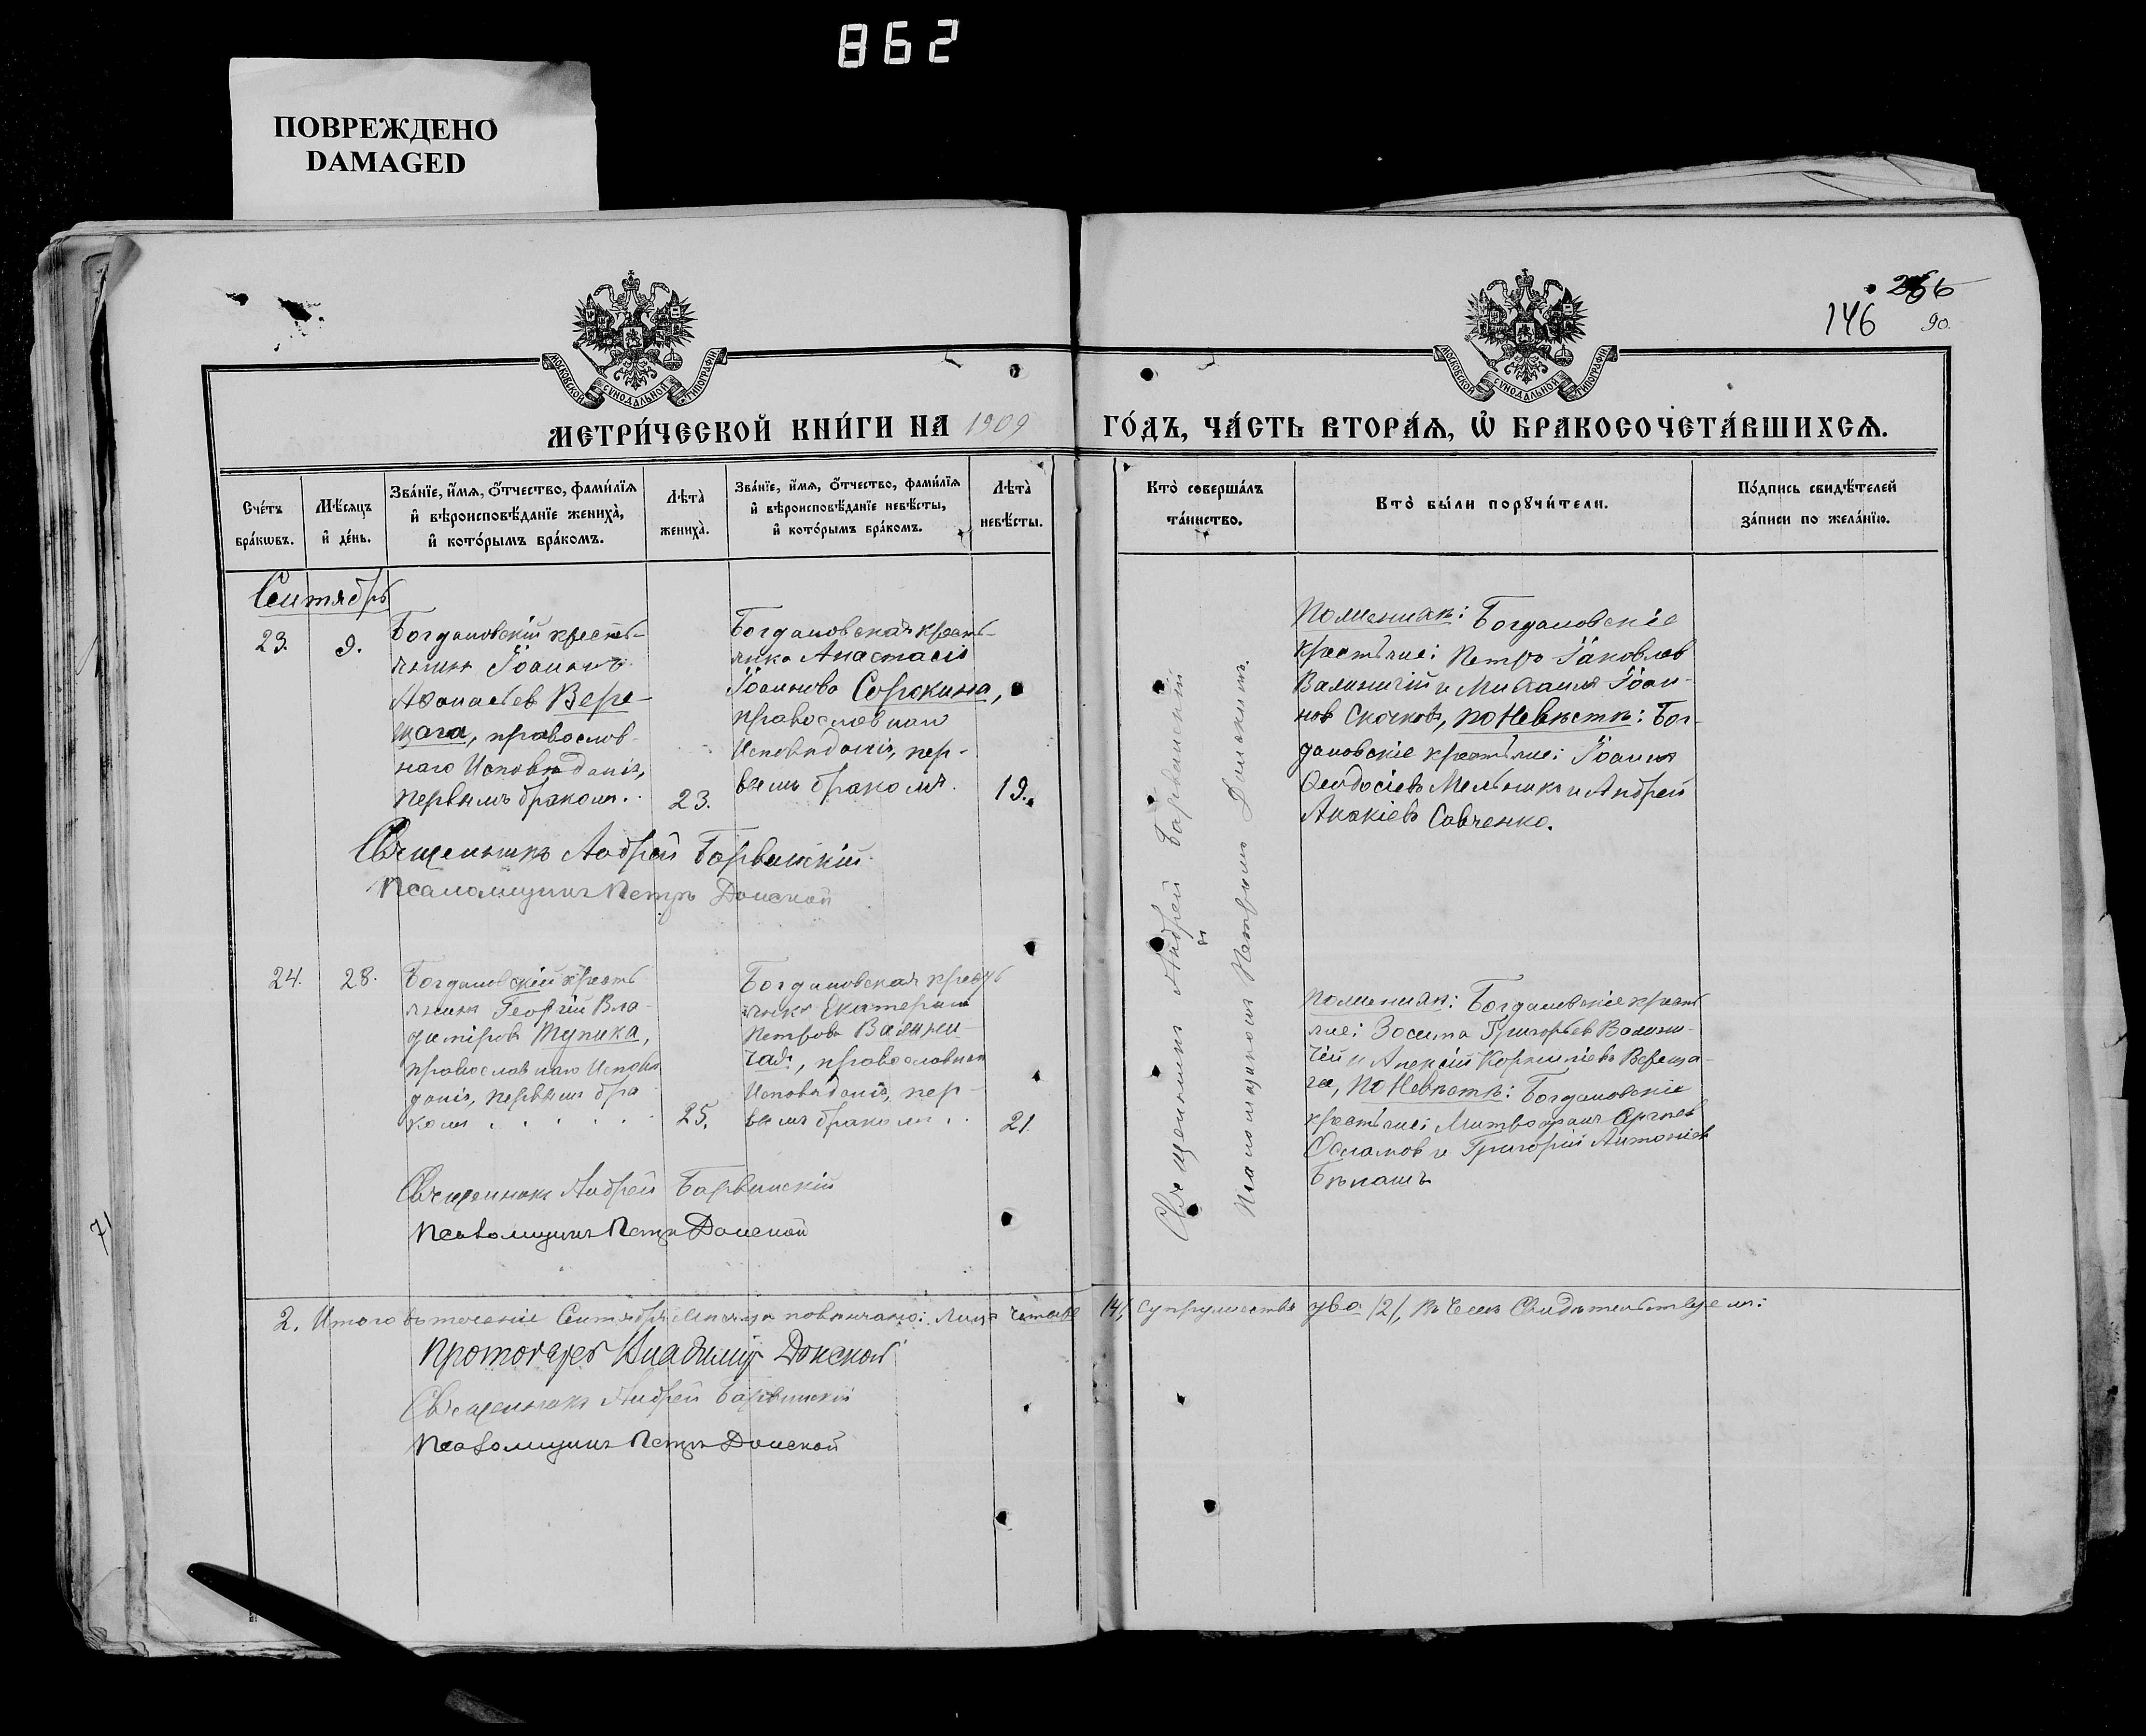 862
ПОВРЕЖДЕНО
DAMAGED
266
146 90.
МОСКОВСКОЙ СУНОДАЛЬНОЙ ТИПОГРАФІИ
МОСКОВСКОЙ СУНОДАЛЬНОЙ ТИПОГРАФІИ
МЕТРИ́ЧЕСКОЙ КНИ́ГИ НА 1909 ГО́ДЪ, ЧА́СТЬ ВТОРА́Ѧ, Ѽ БРАКОСОЧЕТА́ВШИХСѦ.
Сче́тъ бра́кѡвъ.
Мѣ́сѧцъ и҆ де́нь.
Зва́нїе, и҆́мѧ, ѻ҆́тчество, фами́лїѧ
и҆ вѣроисповѣ́данїе жениха̀,
и҆ кото́рымъ бра́комъ.
Лѣта̀ жениха̀.
Зва́нїе, и҆́мѧ, ѻ҆́тчество, фами́лїѧ
и҆ вѣроисповѣ́данїе невѣ́сты,
и҆ кото́рымъ бра́комъ.
Лѣта̀ невѣ́сты.
Кто̀ соверша́лъ
та́инство.
Кто̀ бы́ли порꙋчи́тели.
По́дпись свидѣ́телей
за́писи по жела́нїю.
Сентябрь
23. 9.
Богдановскій кресть-
янинъ Іоаннъ
Аѳанасьев Вере-
щага, православ-
наго Исповѣданія,
первымъ бракомъ.
23.
Богдановская кресть-
янка Анастасія
Іоаннова Сорокина,
православнаго
Исповѣданія, пер-
вымъ бракомъ.
19.
Священникъ Андрей Барвинскій
Псаломщикъ Петръ Донской
Священникъ Андрей Барвинскій
и
Псаломщикомъ Петромъ Донскимъ.
По женихѣ: Богдановскіе
крестьяне: Петръ Іаковлев
Валиничій и Михаилъ Іоан-
нов Скочковъ, по Невѣстѣ: Бог-
дановскіе крестьяне: Іоаннъ
Ѳеодосіевъ Мельникъ и Андрей
Акакіевъ Савченко.
24. 28.
Богдановскій кресть
янинъ Георгій Вла-
диміровъ Тупика,
православнаго Исповѣ
данія, первымъ бра
комъ . . . . .
25.
Богдановская кресть
янка Екатерина
Петрова Валини-
чая, православнаго
Исповѣданія, пер-
вымъ бракомъ . .
21.
По женихѣ: Богдановскіе кресть
яне: Зосима Григорьев Валини-
чій и Алексій Корниліевъ Вереща-
га, по Невѣстѣ: Богдановскіе
крестьяне:
и Григорій Антоніев
Священникъ Андрей Барвинскій
Псаломщикъ Петръ Донской
2. Итого въ теченіе Сентября Мѣсяца повѣнчано: Лицъ четыре /4/, супружествъ два /2/, въ чемъ Свидѣтельствуемъ:
Протоіерей Владиміръ Донской
Священникъ Андрей Барвинскій
Псаломщикъ Петръ Донской
71